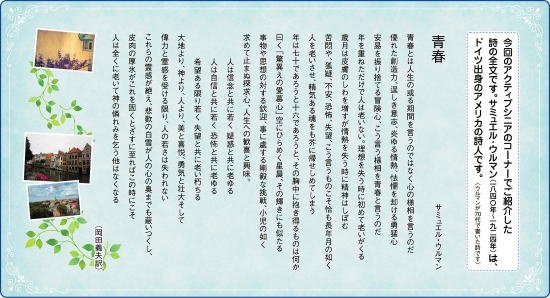 今回のアクティブシニアのコーナーでご紹介した
詩の全文です。サミュエル・ウルマン(一八四〇年~一九二四年)は、
ドイツ出身のアメリカの詩人です。
(ウルマンが70代で書いた詩です)
青春
サミュエル・ウルマン
青春とは人生の或る期間を言うのではなく心の様相を言うのだ
優れた創造力、逞しき意志、炎ゆる情熱、怯懦を却ける勇猛心
安易を振り捨てる冒険心、こう言う様相を青春と言うのだ
年を重ねただけで人は老いない。理想を失う時に初めて老いがくる
歳月は皮膚のしわを増すが情熱を失う時に精神はしぼむ
苦悶や、狐疑、不安、恐怖、失望、こう言うものこそ恰も長年月の如く
人を老いさせ、精気ある魂をも芥に帰せしめてしまう
年は七十であろうと十六であろうと、その胸中に抱き得るものは何か
曰く「驚異への愛慕心」空にひらめく星晨、その輝きにも似たる
事物や思想の対する欽迎、事に處する剛毅な挑戦、小児の如く
求めて止まぬ探求心、人生への歓喜と興味。
人は信念と共に若く 疑惑と共に老ゆる
人は自信と共に若く 恐怖と共に老ゆる
希望ある限り若く 失望と共に老い朽ちる
大地より、神より、人より、美と喜悦、勇気と壮大そして
偉力と霊感を受ける限り、人の若さは失われない
これらの霊感が絶え、悲歎の白雪が人の心の奥までも蔽いつくし、
皮肉の厚氷がこれを固くとざすに至ればこの時にこそ
人は全くに老いて神の憐れみを乞う他はなくなる
(岡田義夫訳)